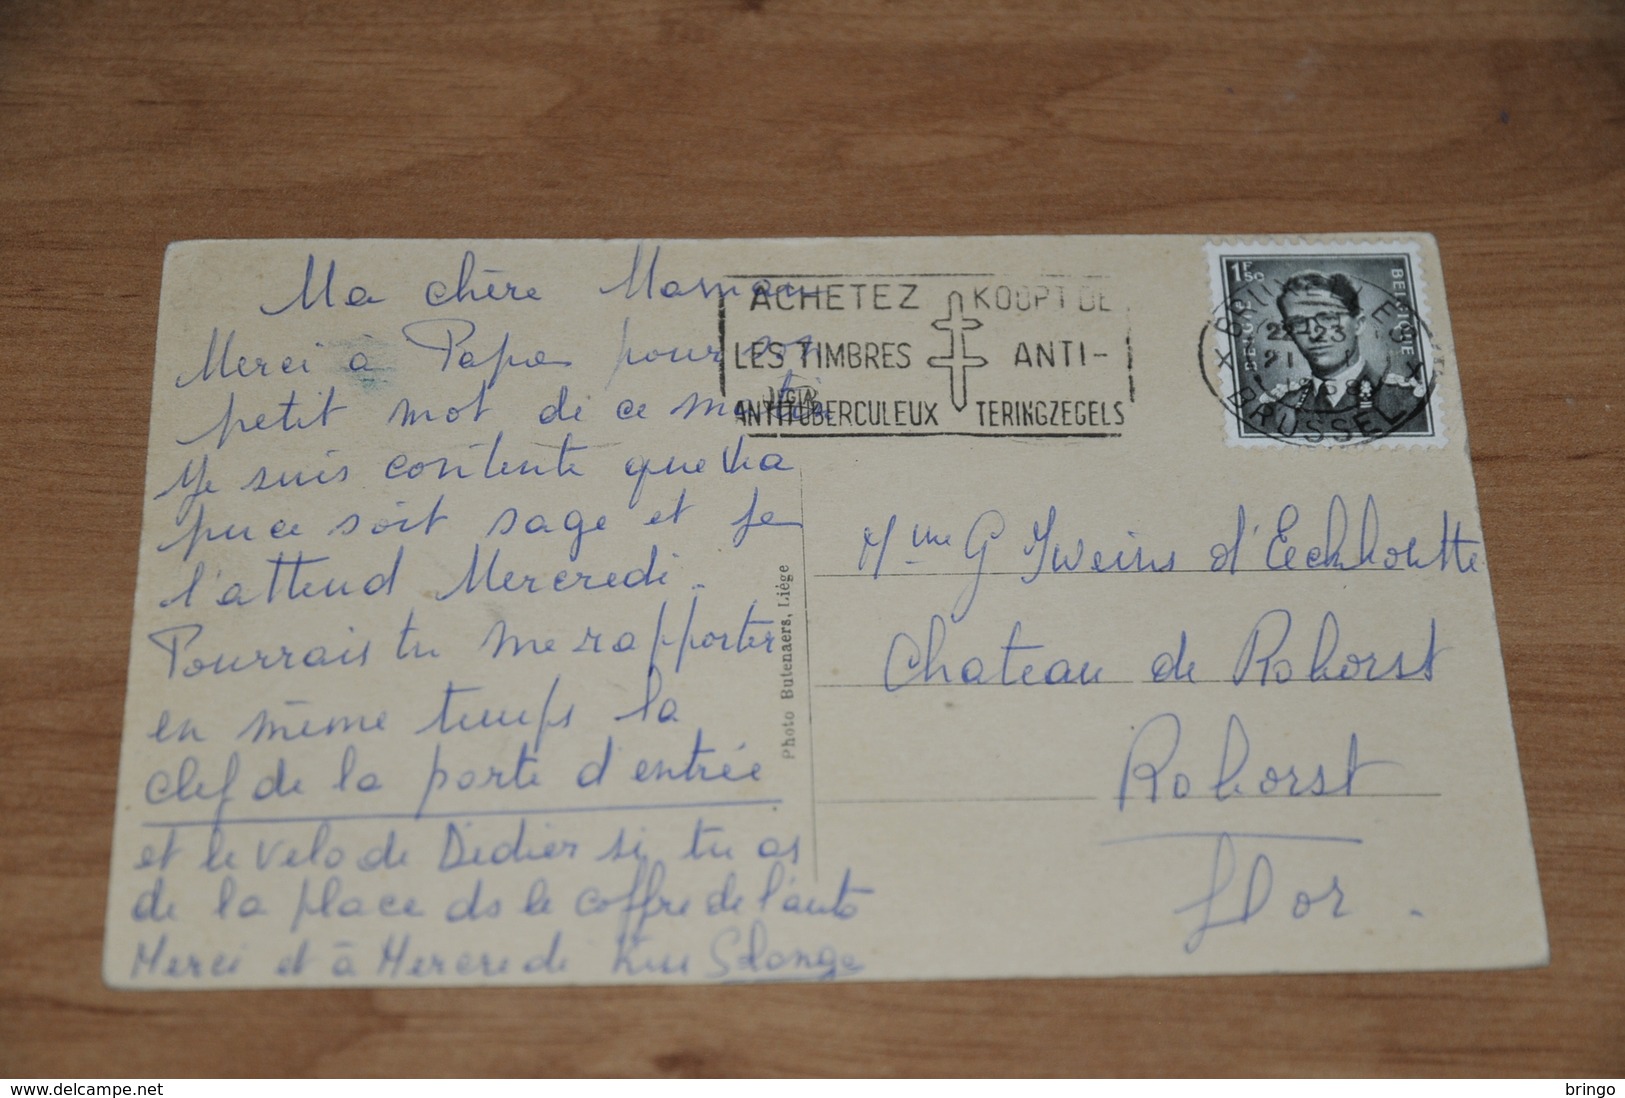 Ma chère Maman
Merci à Papa pour son
petit mot de ce matin
Je suis contente que
puce soit sage et je
l'attend Mercredi.
Pourrais tu me rapporter
en même temps la
clef de la porte d'entrée
et le velo de Didier si tu as
de la place ds le coffre de l'auto
Merci et à Mercredi Solange
ACHETEZ
LES TIMBRES
ANTITUBERCULEUX
KOOPT DE
ANTI-
TERINGZEGELS
1F50
BELGIQUE
BELGIE
22-23
21
BRUSSEL
Photo Butenaers, Liége
Mme G Iweins d'Eeckhoutte
Chateau de Roborst
Roborst
fl or.
delcampe.net
bringo